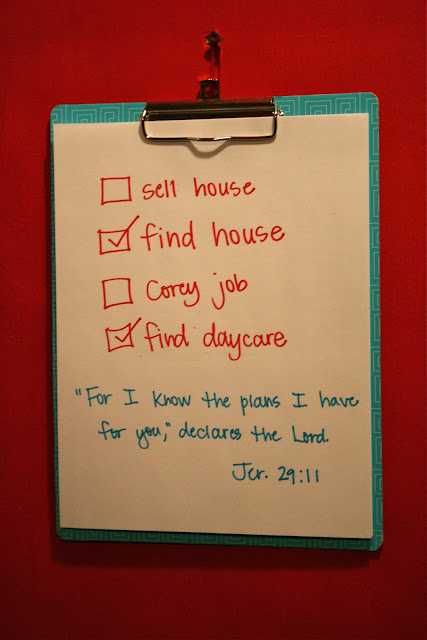 sell house
find house
Corey job
find daycare
"For I know the plans I have
for you," declares the Lord.
Jer. 29:11